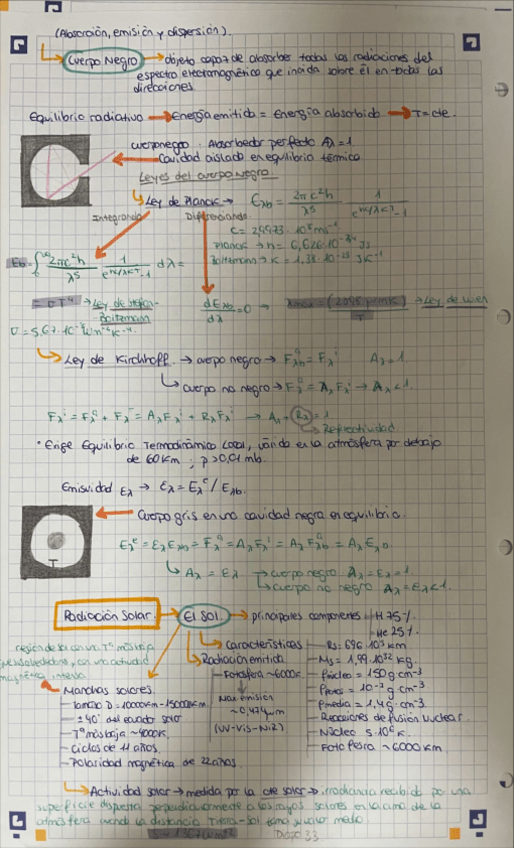 (Absorción, emisión y dispersión).
Cuerpo Negro → objeto capaz de absorber todas las radiaciones del
espectro electromagnético que incida sobre él en todas las
direcciones.
Equilibrio radiativo → Energía emitida = Energía absorbida → T = cte.
cuerpo negro: Absorbedor perfecto Aλ = 1
Cavidad aislada en equilibrio térmico.
Leyes del cuerpo negro
Ley de Planck → Eλb = 2πc²h / λ⁵ · 1 / e^(hc/λKT) - 1
Integrando Diferenciando
Planck → h = 6,626·10⁻³⁴ Js
Boltzmann → K = 1,38·10⁻²³ JK⁻¹
Eb = ∫ 2πc²h / λ⁵ · 1 / e^(hc/λKT) - 1 dλ =
= σT⁴ → Ley de Stefan-Boltzmann
dEλb / dλ = 0 → → Ley de Wien
Ley de Kirchhoff → cuerpo negro → Fλb^a = Fλ^i Aλ = 1
cuerpo no negro → Fλ^a = Aλ Fλ^i → Aλ < 1
Fλ^i = Fλ^a + Fλ^r = Aλ Fλ^i + Rλ Fλ^i → Aλ + Rλ = 1
Reflectividad
* Exige Equilibrio Termodinámico Local, válido en la atmósfera por debajo
de 60 km ; p > 0,01 mb.
Emisividad Ελ → Ελ = Eλ^e / Eλb
Cuerpo gris en una cavidad negra en equilibrio.
T
Eλ^e = Ελ Eλb = Fλ^a = Aλ Fλ^i = Aλ Fλb^a = Aλ Eλb
Aλ = Ελ → cuerpo negro Aλ = Ελ = 1
cuerpo no negro Aλ = Ελ < 1
Radiación Solar → El Sol → principales componentes - H 75%
He 25%
Características
- Rs = 696·10³ km
- Ms = 1,99·10³² kg.
- ρnúcleo = 150 g cm⁻³
- ρmedia = 1,4 g cm⁻³
- Reacciones de fusión nuclear.
- Fotosfera ~ 6000 K
Radiación emitida
- Fotosfera ~ 6000K
Max emisión
~ 0,474 µm
(UV-Vis-NIR)
Manchas solares
- Tamaño D = 10000Km - 15000Km
- ±40° del ecuador solar
- Tª más baja ~ 4000K
- Ciclos de 11 años.
- Polaridad magnética de 22 años.
Actividad solar → medida por la cte solar → irradiancia recibida por una
superficie dispuesta perpendicularmente a los rayos solares en la cima de la
atmósfera cuando la distancia Tierra-Sol toma su valor medio.